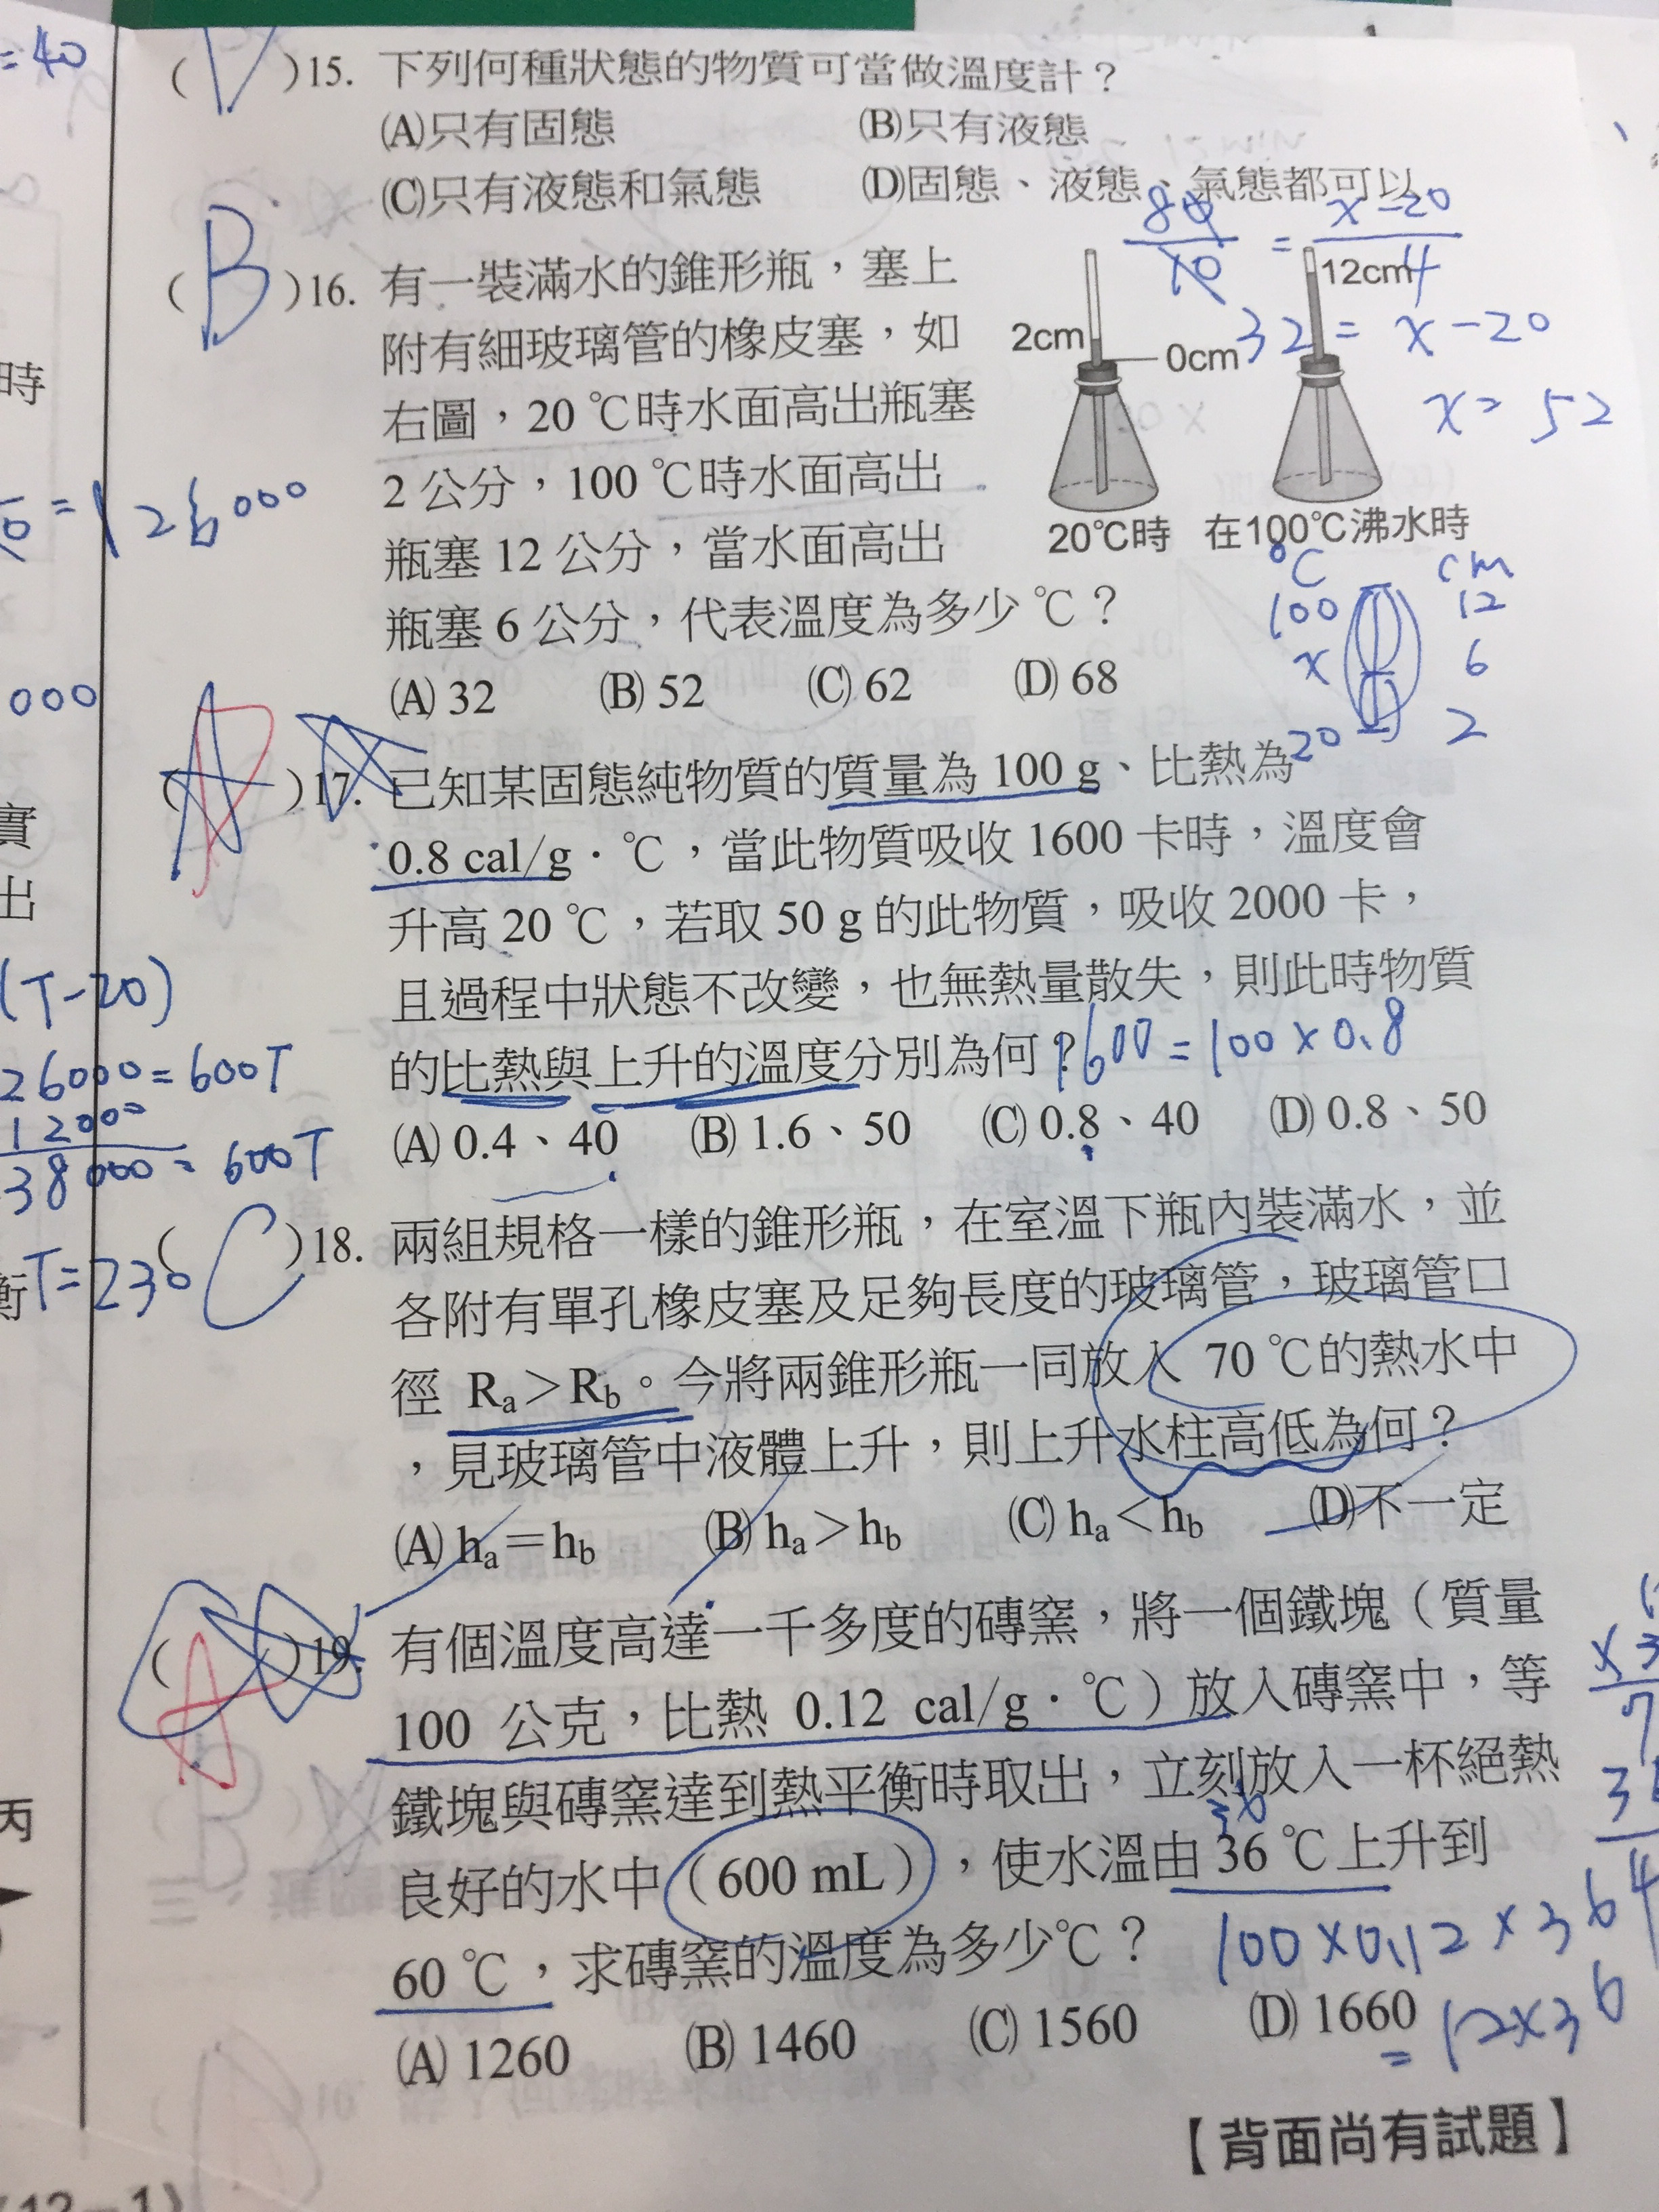 =40
( D )15. 下列何種狀態的物質可當做溫度計？
(A)只有固態 (B)只有液態
(C)只有液態和氣態 (D)固態、液態、氣態都可以
80/10 = x-20/4
32 = x-20
x= 52
( B )16. 有一裝滿水的錐形瓶，塞上
附有細玻璃管的橡皮塞，如
右圖，20 ℃時水面高出瓶塞
2 公分，100 ℃時水面高出
瓶塞 12 公分，當水面高出
瓶塞 6 公分，代表溫度為多少 ℃？
(A) 32 (B) 52 (C) 62 (D) 68
2cm
0cm
12cm
20℃時
在100℃沸水時
℃ cm
100 12
x 6
20 2
時
=126000
000
( A )17. 已知某固態純物質的質量為 100 g、比熱為
0.8 cal/g．℃，當此物質吸收 1600 卡時，溫度會
升高 20 ℃，若取 50 g 的此物質，吸收 2000 卡，
且過程中狀態不改變，也無熱量散失，則此時物質
的比熱與上升的溫度分別為何？
1600 = 100 × 0.8
(A) 0.4、40 (B) 1.6、50 (C) 0.8、40 (D) 0.8、50
實
出
(T-20)
26000=600T
12000
38000=600T
T=230
( C )18. 兩組規格一樣的錐形瓶，在室溫下瓶內裝滿水，並
各附有單孔橡皮塞及足夠長度的玻璃管，玻璃管口
徑 Ra＞Rb。今將兩錐形瓶一同放入 70 ℃的熱水中
，見玻璃管中液體上升，則上升水柱高低為何？
(A) ha＝hb (B) ha＞hb (C) ha＜hb (D)不一定
( A )19. 有個溫度高達一千多度的磚窯，將一個鐵塊（質量
100 公克，比熱 0.12 cal/g．℃）放入磚窯中，等
鐵塊與磚窯達到熱平衡時取出，立刻放入一杯絕熱
良好的水中（600 mL），使水溫由 36 ℃上升到
60 ℃，求磚窯的溫度為多少℃？
(A) 1260 (B) 1460 (C) 1560 (D) 1660
100×0.12×36
= 12×36
丙
【背面尚有試題】